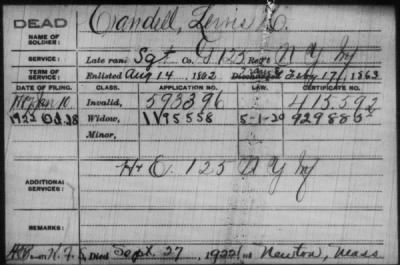 DEAD
NAME OF SOLDIER: Candell, Lewis D.
SERVICE: Late rank Sgt Co. I 125 Reg't N Y Inf
TERM OF SERVICE: Enlisted Aug 14 1862 Discharged Feby 17, 1863
DATE OF FILING. CLASS. APPLICATION NO. LAW. CERTIFICATE NO.
Jan 10. Invalid, 593396 413,592
1922 Oct 28 Widow, 1195558 5-1-20 929885
Minor,
ADDITIONAL SERVICES: H 125 N Y Inf
REMARKS:
Died Sept. 27, 1922 at Newton, Mass